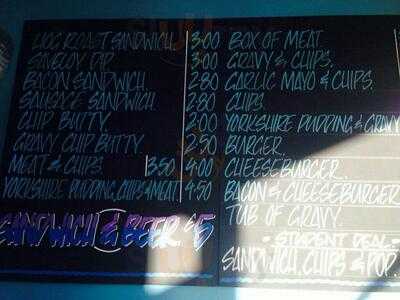 HOG ROAST SANDWICH. 3·00
SAVELOY DIP. 3·00
BACON SANDWICH. 2·80
SAUSAGE SANDWICH. 2·80
CHIP BUTTY. 2·00
GRAVY CHIP BUTTY. 2·50
MEAT & CHIPS. 3·50 4·00
YORKSHIRE PUDDING, CHIPS & MEAT 4·50
SANDWICH & BEER £5
BOX OF MEAT.
GRAVY & CHIPS.
GARLIC MAYO & CHIPS.
CHIPS.
YORKSHIRE PUDDING & GRAVY
BURGER.
CHEESEBURGER.
BACON & CHEESEBURGER
TUB OF GRAVY.
- STUDENT DEAL -
SANDWICH, CHIPS & POP.